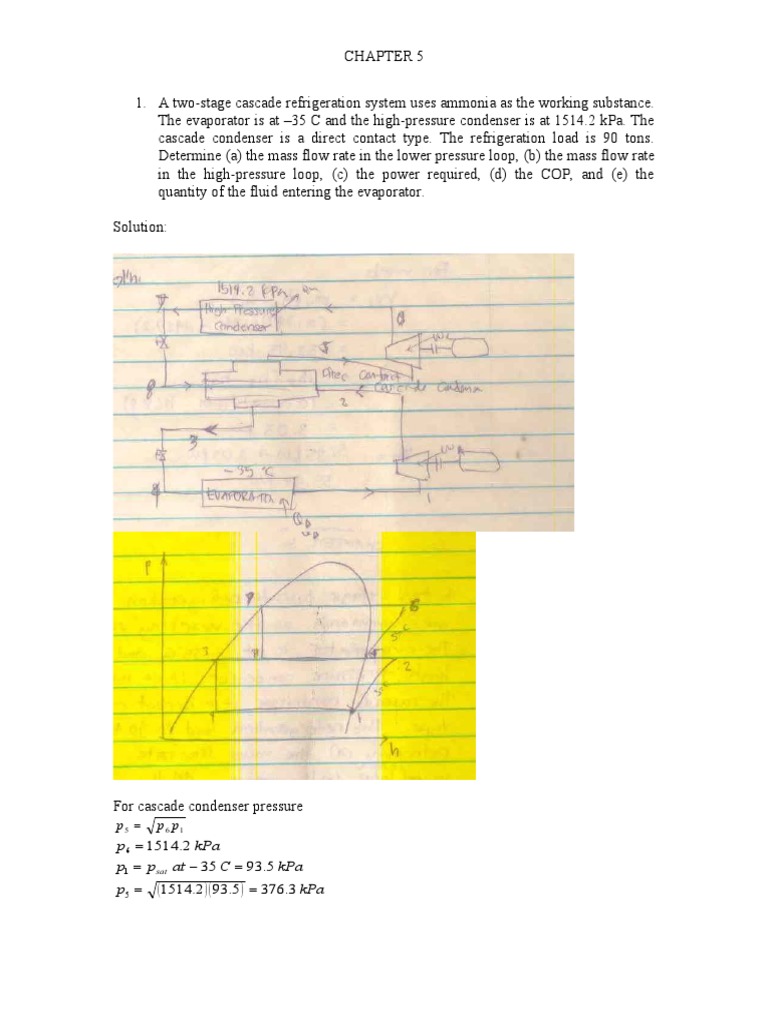 CHAPTER 5
1. A two-stage cascade refrigeration system uses ammonia as the working substance.
The evaporator is at –35 C and the high-pressure condenser is at 1514.2 kPa. The
cascade condenser is a direct contact type. The refrigeration load is 90 tons.
Determine (a) the mass flow rate in the lower pressure loop, (b) the mass flow rate
in the high-pressure loop, (c) the power required, (d) the COP, and (e) the
quantity of the fluid entering the evaporator.
Solution:
1514.2 kPa
7
High Pressure
Condenser
6
5
8
Direc Contact
Cascade Condense
2
3
-35 °C
4
EVAPORATOR
1
P
7
6
5
3
8
5
2
4
1
h
For cascade condenser pressure
p₅ = √p₆p₁
p₆ = 1514.2 kPa
p₁ = p_sat at − 35 C = 93.5 kPa
p₅ = √(1514.2)(93.5) = 376.3 kPa